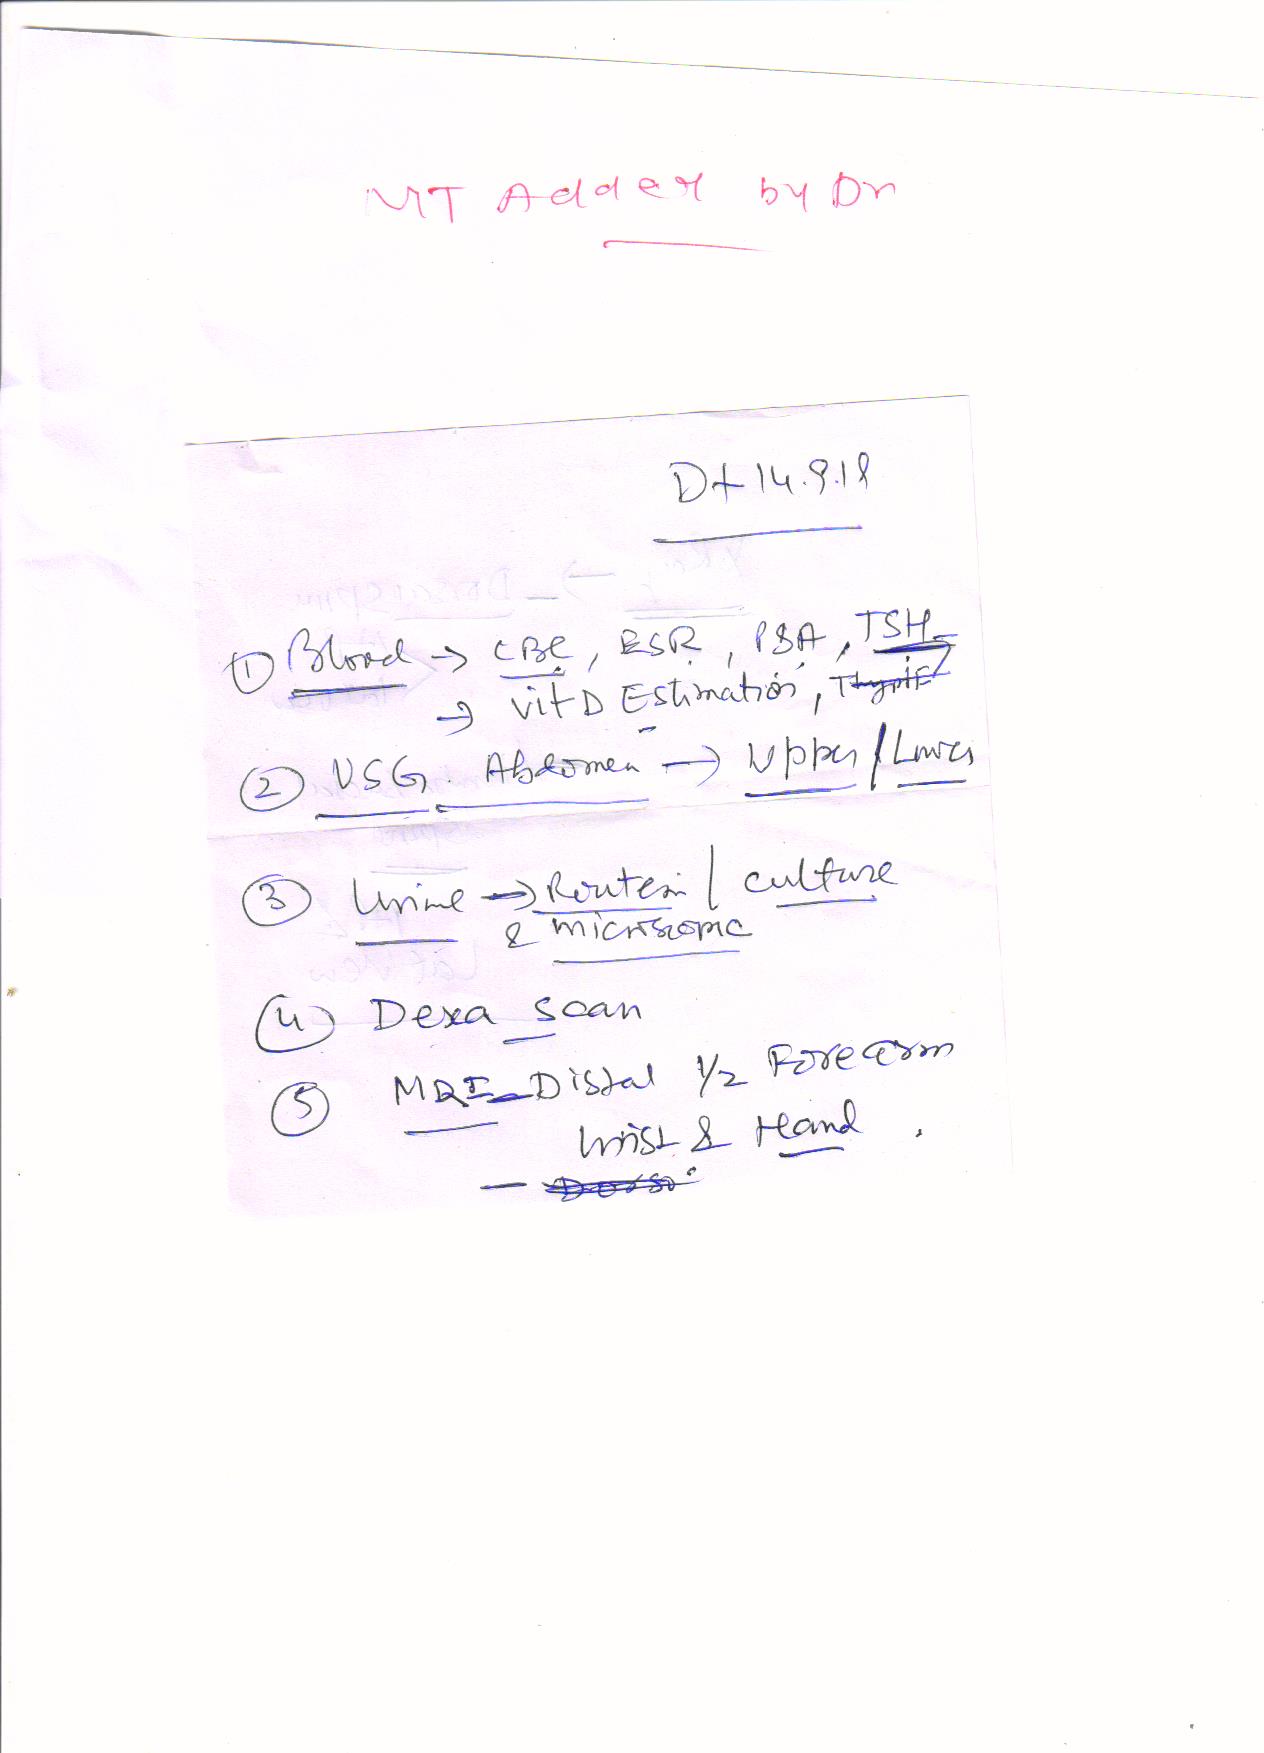 by Dr
Dt 14.9.18
① Blood → CBC, ESR, PSA, TSH
→ Vit D Estimation,
② USG. Abdomen → Upper / Lower
③ Urine → Routein / culture
& microscopic
④ Dexa scan
⑤ MRI - Distal 1/2 Forearm
Wrist & Hand.